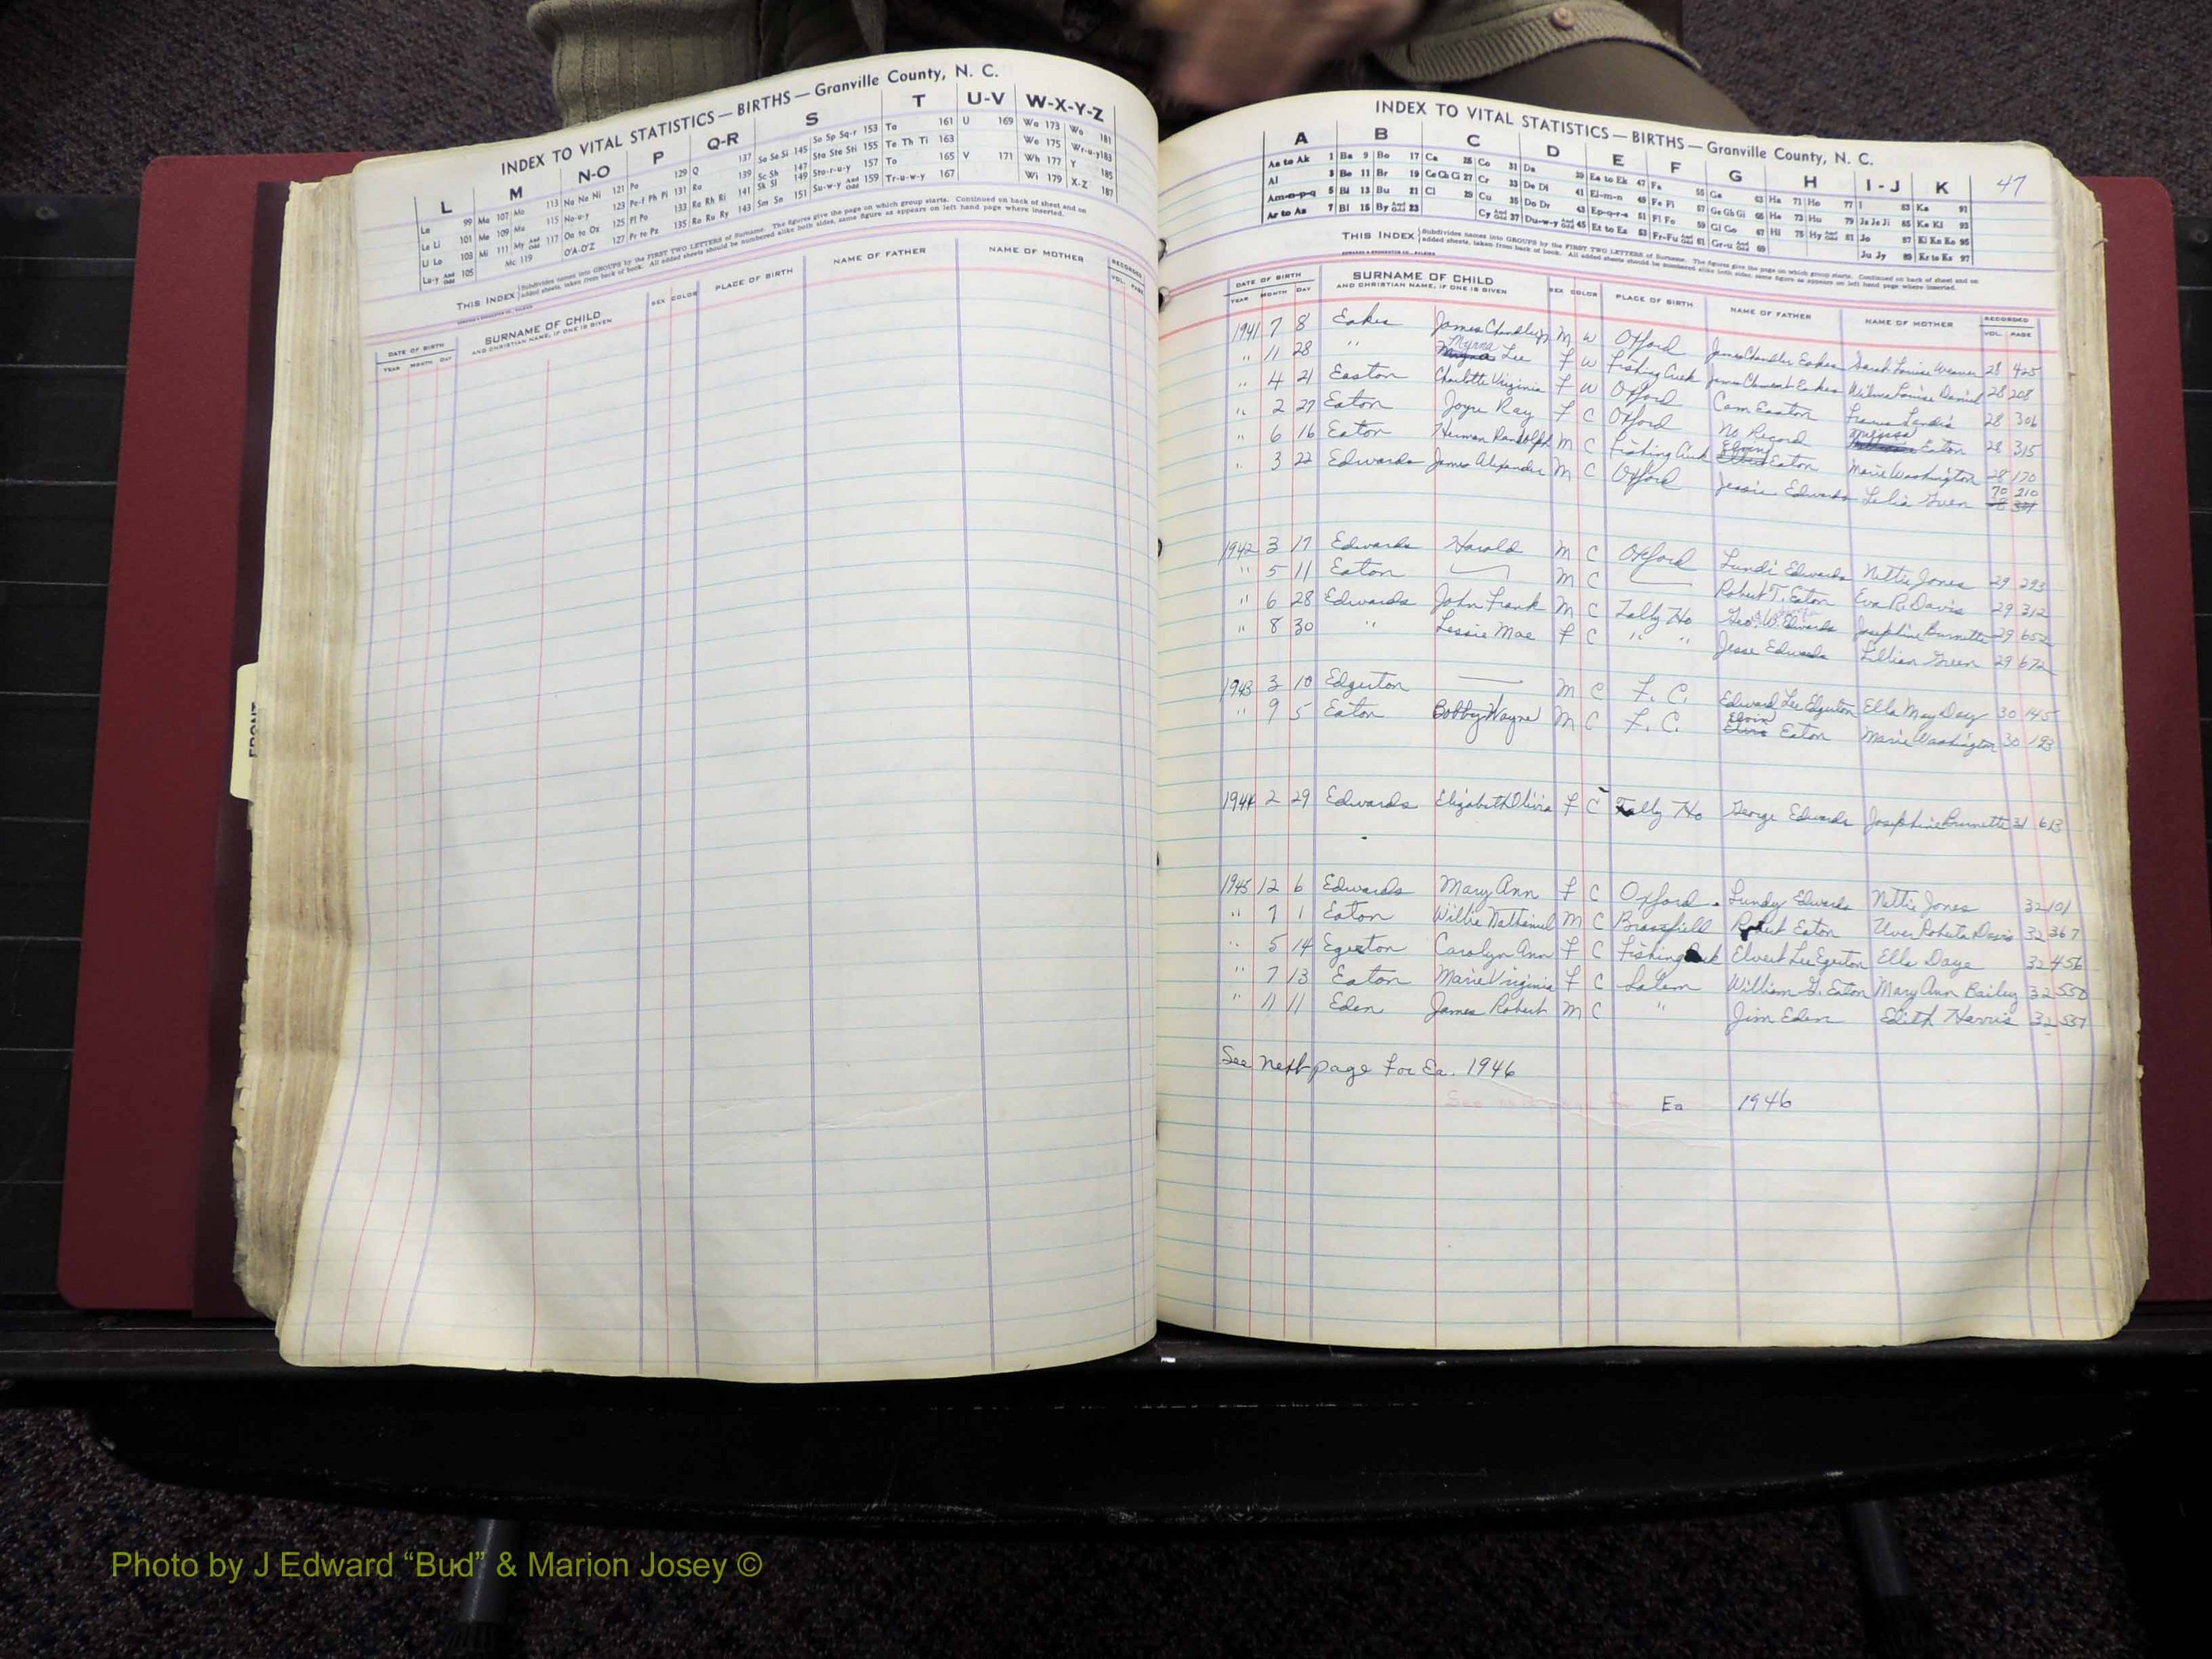 INDEX TO VITAL STATISTICS — BIRTHS — Granville County, N. C.
L M N-O P Q-R S T U-V W-X-Y-Z
La 99 Ma 107 Mo 113 Na Ne Ni 121 Pa 129 Q 137 Sa Se Si 145 So Sp Sq-r 153 Ta 161 U 169 Wa 173 Wo 181
Le Li 101 Me 109 Mu 115 No-u-y 123 Pe-f Ph Pi 131 Ra 139 Sc Sh 147 Sta Ste Sti 155 Te Th Ti 163 We 175 Wr-u-y 183
Ll Lo 103 Mi 111 My And Odd 117 Oa to Oz 125 Pl Po 133 Re Rh Ri 141 Sk Sl 149 Sto-r-u-y 157 To 165 V 171 Wh 177 Y 185
Lu-y And Odd 105 Mc 119 O'A-O'Z 127 Pr to Pz 135 Ro Ru Ry 143 Sm Sn 151 Su-w-y And Odd 159 Tr-u-w-y 167 Wi 179 X-Z 187
THIS INDEX Subdivides names into GROUPS by the FIRST TWO LETTERS of Surname. The figures give the page on which group starts. Continued on back of sheet and on
added sheets, taken from back of book. All added sheets should be numbered alike both sides, same figure as appears on left hand page where inserted.
DATE OF BIRTH SURNAME OF CHILD SEX COLOR PLACE OF BIRTH NAME OF FATHER NAME OF MOTHER RECORDED
YEAR MONTH DAY AND CHRISTIAN NAME, IF ONE IS GIVEN VOL. PAGE
FRONT
INDEX TO VITAL STATISTICS — BIRTHS — Granville County, N. C.
47
A B C D E F G H I-J K
Aa to Ak 1 Ba 9 Bo 17 Ca 25 Co 31 Da 39 Ea to Ek 47 Fa 55 Ga 63 Ha 71 Ho 77 I 83 Ka 91
Al 3 Be 11 Br 19 Ce Ch Ci 27 Cr 33 De Di 41 El-m-n 49 Fe Fi 57 Ge Gh Gi 65 He 73 Hu 79 Ja Je Ji 85 Ke Ki 93
Am-n-p-q 5 Bi 13 Bu 21 Cl 29 Cu 35 Do Dr 43 Ep-q-r-s 51 Fl Fo 59 Gl Go 67 Hi 75 Hy And Odd 81 Jo 87 Kl Kn Ko 95
Ar to Az 7 Bl 15 By And Odd 23 Cy And Odd 37 Du-w-y And Odd 45 Et to Ez 53 Fr-Fu And Odd 61 Gr-u And Odd 69 Ju Jy 89 Kr to Kz 97
THIS INDEX Subdivides names into GROUPS by the FIRST TWO LETTERS of Surname. The figures give the page on which group starts. Continued on back of sheet and on
added sheets, taken from back of book. All added sheets should be numbered alike both sides, same figure as appears on left hand page where inserted.
DATE OF BIRTH SURNAME OF CHILD SEX COLOR PLACE OF BIRTH NAME OF FATHER NAME OF MOTHER RECORDED
YEAR MONTH DAY AND CHRISTIAN NAME, IF ONE IS GIVEN VOL. PAGE
1941 7 8 Eakes James Chandler Jr M W Oxford James Chandler Eakes Sarah Louise Weaver 28 425
" 11 28 " Myrna Lee F W Fishing Creek James Clement Eakes Wilma Louise Daniel 28 208
" 4 21 Easton Charlotte Virginia F W Oxford Cam Easton Frances Landis 28 306
" 2 27 Eaton Joyce Ray F C Oxford No Record Melissa Eaton 28 315
" 6 16 Eaton Herman Randolph M C Fishing Creek Elvin Eaton Marie Washington 28 170
" 3 22 Edwards James Alexander M C Oxford Jessie Edwards Lelia Green 70 210
1942 3 17 Edwards Harold M C Oxford Lundi Edwards Nettie Jones 29 293
" 5 11 Eaton M C Robert T. Eaton Eva R. Davis 29 312
" 6 28 Edwards John Frank M C Tally Ho Geo. W. Edwards Josephine Burnette 29 652
" 8 30 " Lessie Mae F C " " Jesse Edwards Lillian Green 29 672
1943 3 10 Edgerton M C F. C. Edward Lee Edgerton Ella May Day 30 145
" 9 5 Eaton Bobby Wayne M C F. C. Elvin Eaton Marie Washington 30 193
1944 2 29 Edwards Elizabeth Olivia F C Tally Ho George Edwards Josephine Burnette 31 613
1945 12 6 Edwards Mary Ann F C Oxford Lundy Edwards Nettie Jones 32 101
" 7 1 Eaton Willie Nathaniel M C Brassfield Robert Eaton Uver Roberta Davis 32 367
" 5 14 Egerton Carolyn Ann F C Fishing Creek Elvert Lee Egerton Ella Daye 32 456
" 7 13 Eaton Marie Virginia F C Salem William G. Eaton Mary Ann Bailey 32 550
" 11 11 Eden James Robert M C " Jim Eden Edith Harris 32 557
See next page for Ea. 1946
See next page for Ea 1946
Photo by J Edward “Bud” & Marion Josey ©